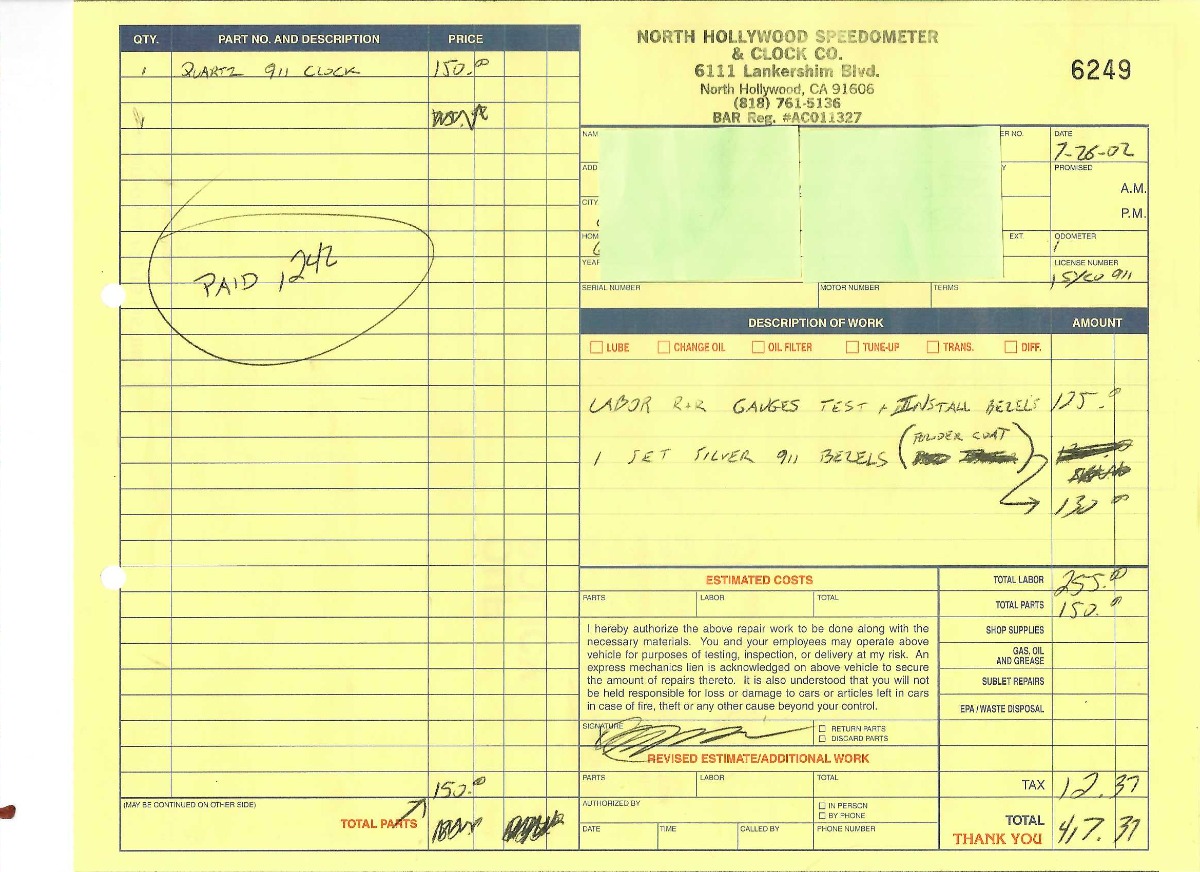 QTY. PART NO. AND DESCRIPTION PRICE
1 QUARTZ 911 CLOCK 150.00
PAID 1242
150.00
(MAY BE CONTINUED ON OTHER SIDE)
TOTAL PARTS
NORTH HOLLYWOOD SPEEDOMETER
& CLOCK CO.
6111 Lankershim Blvd.
North Hollywood, CA 91606
(818) 761-5136
BAR Reg. #AC011327
6249
NAM
ER NO.
DATE
7-26-02
ADD
Y
PROMISED
A.M.
P.M.
CITY
HOM
EXT.
ODOMETER
YEAR
LICENSE NUMBER
911
SERIAL NUMBER MOTOR NUMBER TERMS
DESCRIPTION OF WORK AMOUNT
LUBE CHANGE OIL OIL FILTER TUNE-UP TRANS. DIFF.
LABOR R+R GAUGES TEST + INSTALL BEZELS 125.00
1 SET SILVER 911 BEZELS (POWDER COAT)
130.00
ESTIMATED COSTS
PARTS LABOR TOTAL
I hereby authorize the above repair work to be done along with the
necessary materials. You and your employees may operate above
vehicle for purposes of testing, inspection, or delivery at my risk. An
express mechanics lien is acknowledged on above vehicle to secure
the amount of repairs thereto. It is also understood that you will not
be held responsible for loss or damage to cars or articles left in cars
in case of fire, theft or any other cause beyond your control.
SIGNATURE
RETURN PARTS
DISCARD PARTS
REVISED ESTIMATE/ADDITIONAL WORK
PARTS LABOR TOTAL
AUTHORIZED BY
IN PERSON
BY PHONE
DATE TIME CALLED BY PHONE NUMBER
TOTAL LABOR 255.00
TOTAL PARTS 150.00
SHOP SUPPLIES
GAS, OIL
AND GREASE
SUBLET REPAIRS
EPA / WASTE DISPOSAL
TAX 12.37
TOTAL 417.37
THANK YOU